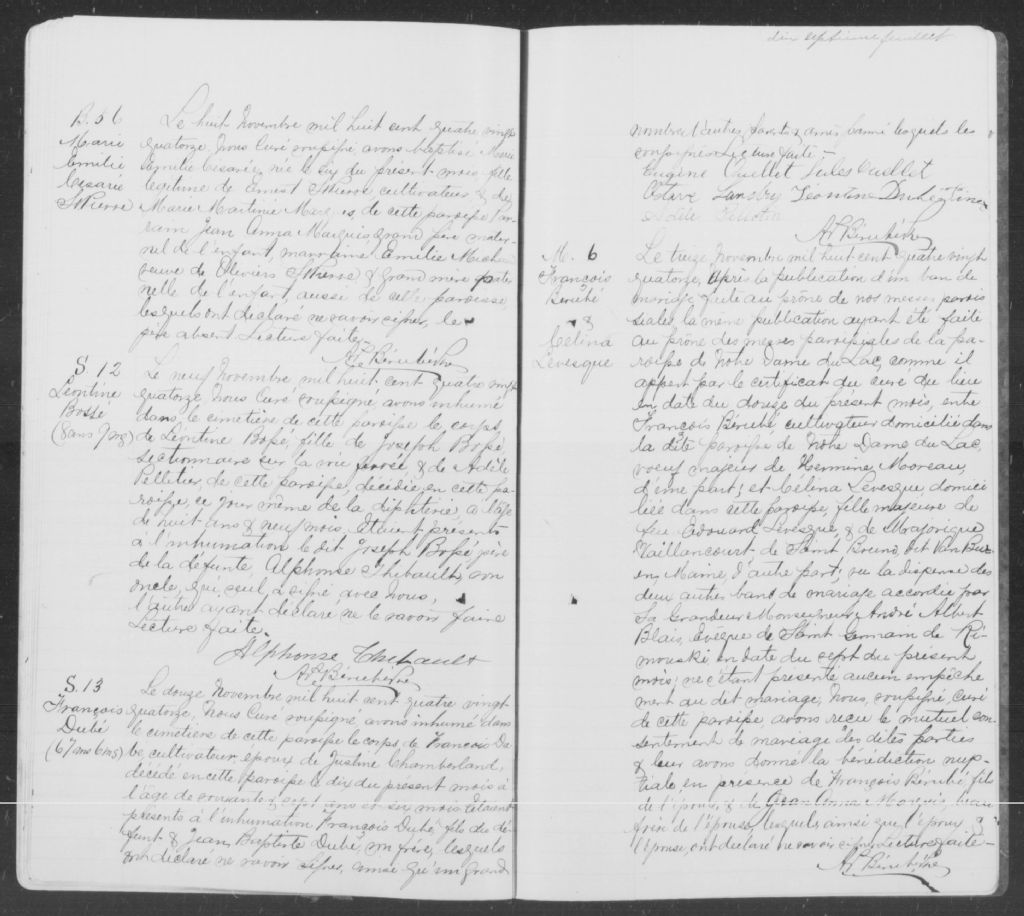 B. 56
Marie
Emilie
Césarie
Le huit Novembre mil huit cent quatre vingt
quatorze, Nous Curé soussigné, avons baptisé Marie
Emilie Césarie, née le six du présent mois, fille
légitime de Ernest cultivateur, & de
Marie Martinie Marquis, de cette paroisse, Par
rain Jean Anna Marquis grand père mater-
nel de l'enfant, marraine Emilie Michaud
veuve de Oliviers & grand mère pater
nelle de l'enfant, aussi de cette paroisse,
lesquels ont déclaré ne savoir signer, le
père absent. Lecture faite.
S. 12
Léontine
Bossé
(8 ans 9 ms)
Le neuf Novembre mil huit cent quatre vingt
quatorze Nous Curé soussigné avons inhumé
dans le cimetière de cette paroisse le corps
de Léontine Bossé, fille de Joseph Bossé
sectionnaire sur la voie ferrée, & de Adèle
Pelletier, de cette paroisse, décédée, en cette pa-
roisse, ce jour même de la diphtérie, à l'âge
de huit ans & neuf mois. Etaient présents
à l'inhumation le dit Joseph Bossé père
de la défunte Alphonse Thibault, son
oncle, qui, seul, a signé avec nous,
l'autre ayant déclaré ne le savoir faire
Lecture faite.
Alphonse Thibault
S. 13
François
Dubé
(67 ans 6 ms)
Le douze Novembre mil huit cent quatre vingt
quatorze, Nous Curé soussigné avons inhumé dans
le cimetière de cette paroisse le corps, de François Du
bé, cultivateur, époux de Justine Chamberland,
décédé en cette paroisse le dix du présent mois à
l'âge de soixante & sept ans six mois. Etaient
présents à l'inhumation François Dubé, fils du dé-
funt & Jean Baptiste Dubé, son frère, lesquels
ont déclaré ne savoir signer, ainsi qu'un grand
dix septième feuillet
nombre d'autres parents & amis, parmi lesquels les
soussignés Lecture faite -
Eugène Ouellet Jules Ouellet
Octave Léontine Dubé
M. 6
François
Bérubé
&
Célina
Levesque
Le treize Novembre mil huit cent quatre vingt
quatorze, Après la publication d'un ban de
mariage faite au prône de nos messes parois
siales, la même publication ayant été faite
au prône des messes paroissiales de la pa-
roisse de Notre Dame du Lac, comme il
appert par le certificat du curé du lieu
en date du douze du présent mois, entre
François Bérubé, cultivateur domicilié dans
la dite paroisse de Notre Dame du Lac,
veuf majeur de Hermine Moreau,
d'une part; et Célina Levesque, domici
liée dans cette paroisse, fille majeure de
feu Edouard Levesque, & de Majorique
Vaillancourt, de Saint Bruno, dit Van Bur
en, Maine, d'autre part; vu la dispense des
deux autres bans de mariage accordée par
Sa Grandeur Monseigneur André Albert
Blais, évêque de Saint Germain de Ri-
mouski, en date du sept du présent
mois; ne s'étant présenté aucun empêche
ment au dit mariage, Nous, soussigné, curé
de cette paroisse avons reçu le mutuel con-
sentement de mariage des dites parties
& leur avons donné la bénédiction nup-
tiale, en présence de François Bérubé, fils
de l'époux, & de Jean Anna Marquis, beau
frère de l'épouse, lesquels, ainsi que l'époux &
l'épouse, ont déclaré ne savoir signer Lecture faite -